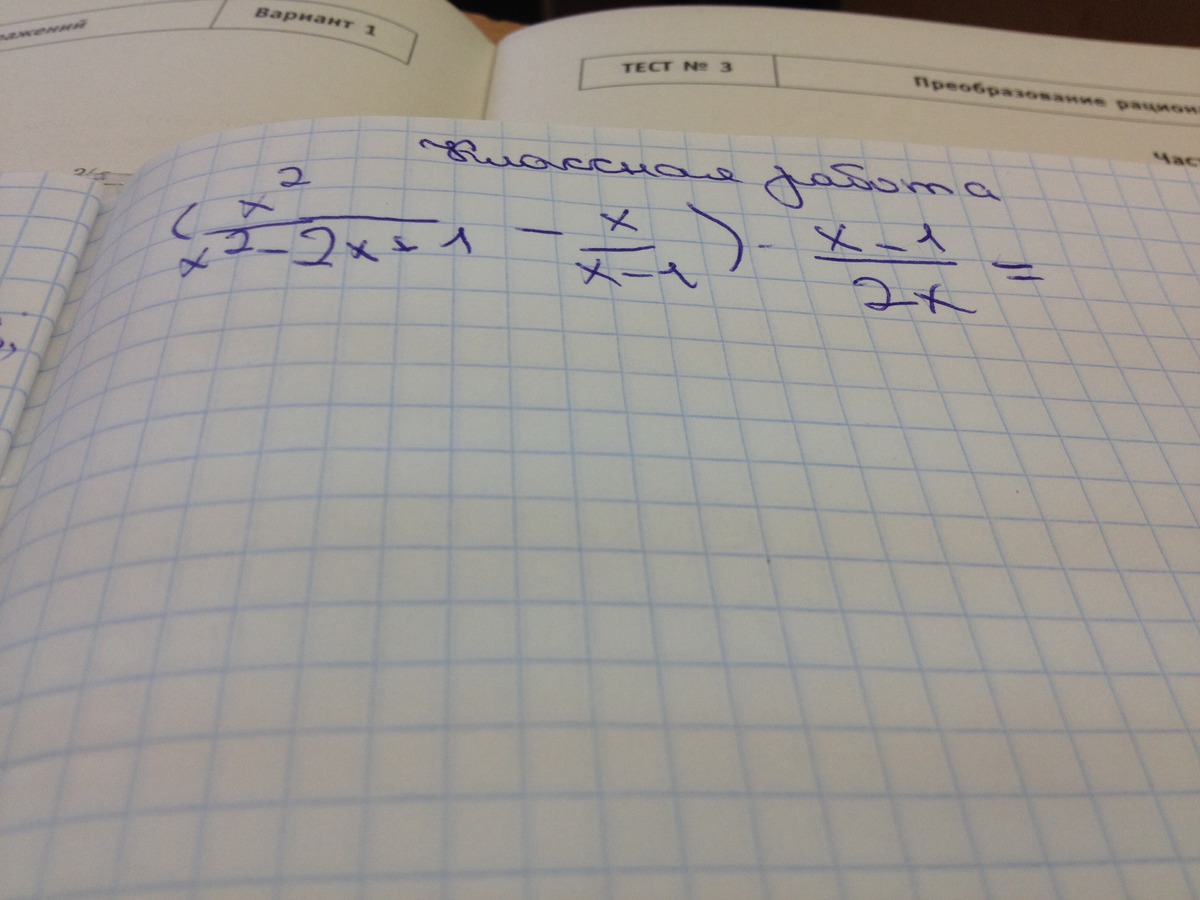 ражений Вариант 1
ТЕСТ № 3 Преобразование рацион
Час
Классная работа
(x²/(x²-2x+1) - x/(x-1)) · (x-1)/2x =